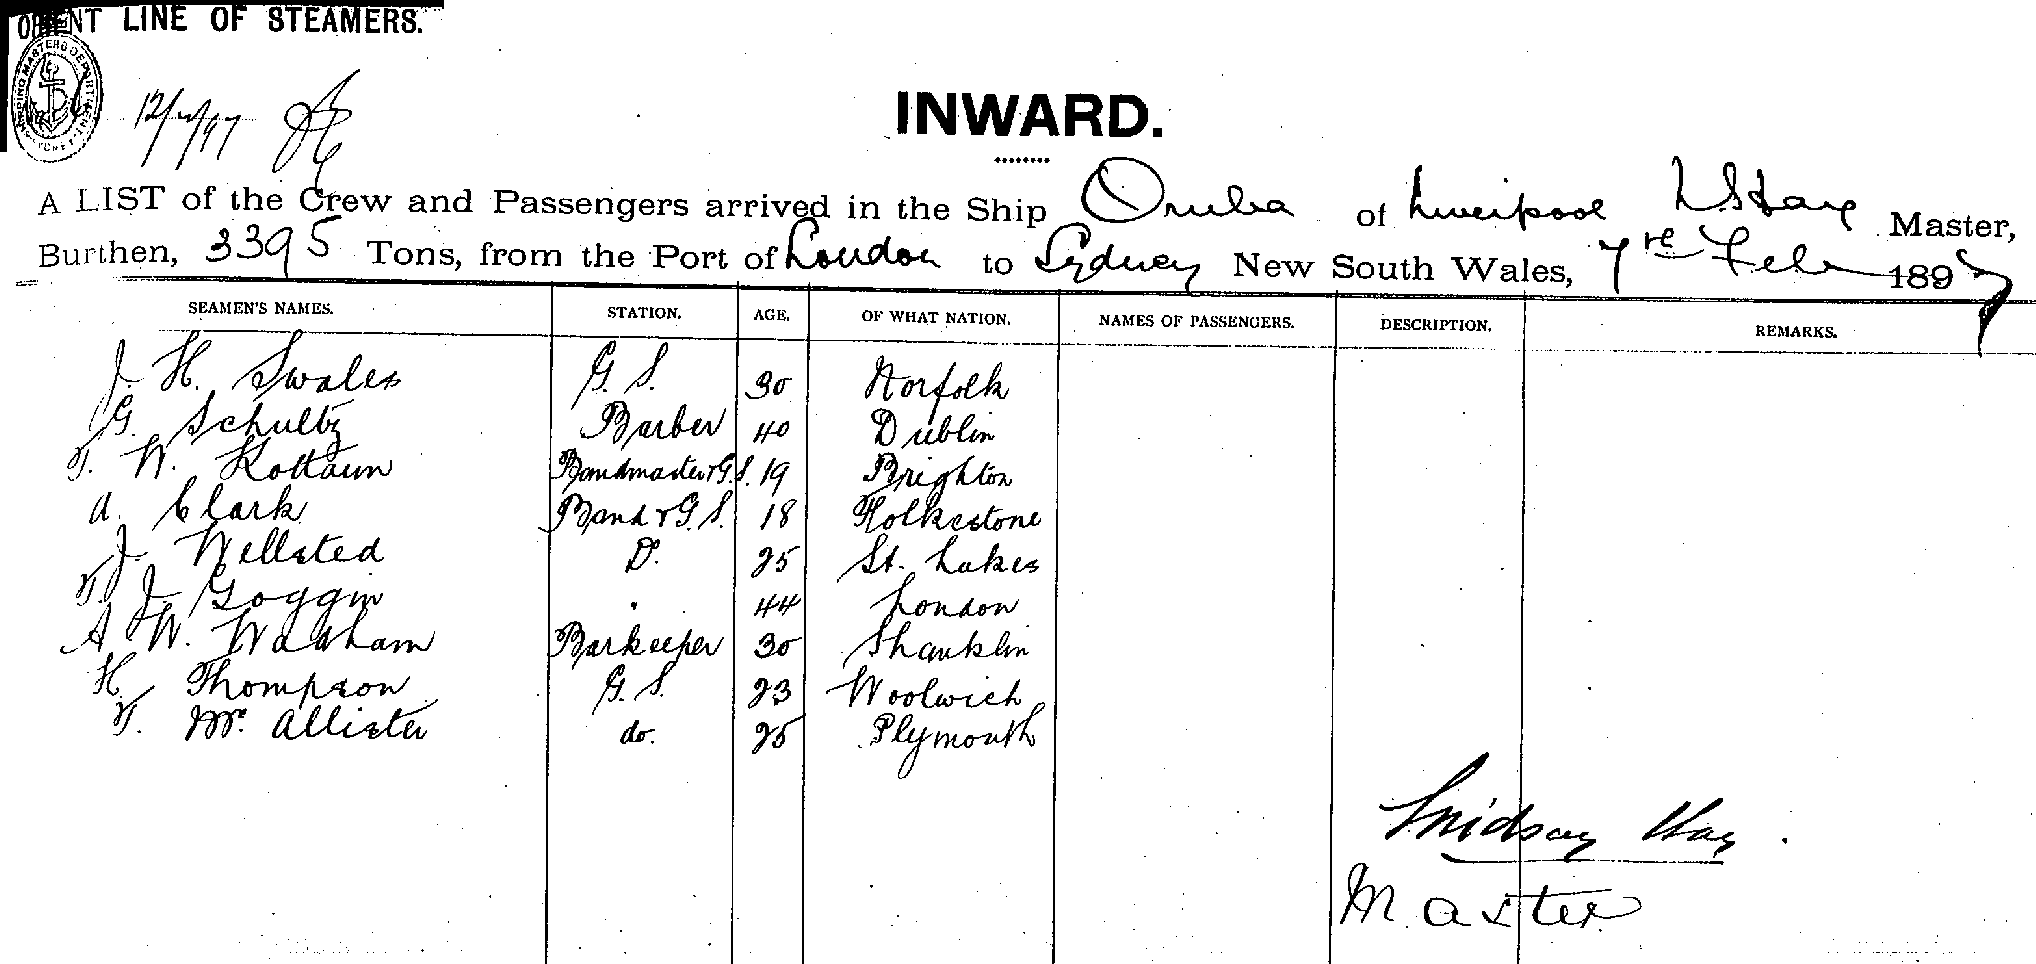 ORIENT LINE OF STEAMERS.
12/2/97
INWARD.
A LIST of the Crew and Passengers arrived in the Ship Oruba of Liverpool L S Hay Master,
Burthen, 3395 Tons, from the Port of London to Sydney New South Wales, 7th Feb 1897
SEAMEN'S NAMES. STATION. AGE. OF WHAT NATION. NAMES OF PASSENGERS. DESCRIPTION. REMARKS.
J. H. Swales G. S. 30 Norfolk
G. Schultz Barber 40 Dublin
T. W. Kottaun Bandmaster & G. S. 19 Brighton
A. Clark Band & G. S. 18 Folkestone
J. Wellsted Do. 25 St. Lukes
T. J. Goggin " 44 London
A W. Wadham Barkeeper 30 Shanklin
H. Thompson G. S. 23 Woolwich
T. Mc. Allister do. 25 Plymouth
Lindsay Hay.
Master